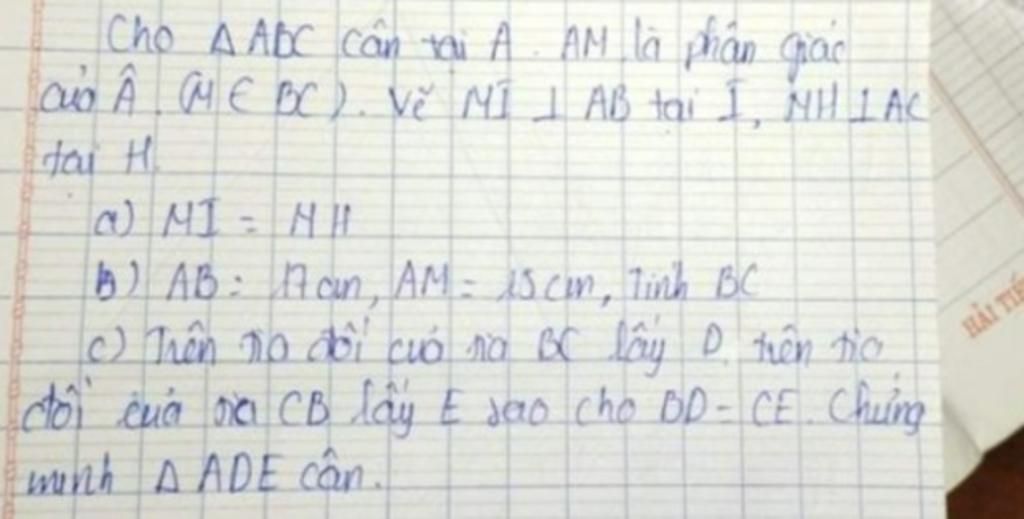 Cho Δ ABC cân tại A. AM là phân giác
của Â. (M ∈ BC). Vẽ MI ⊥ AB tại I, MH ⊥ AC
tại H.
a) MI = MH
b) AB = 17 cm, AM = 15 cm, Tính BC
c) Trên tia đối của tia BC lấy D. trên tia
đối của tia CB lấy E sao cho BD = CE. Chứng
minh Δ ADE cân.
HẢI TIẾ